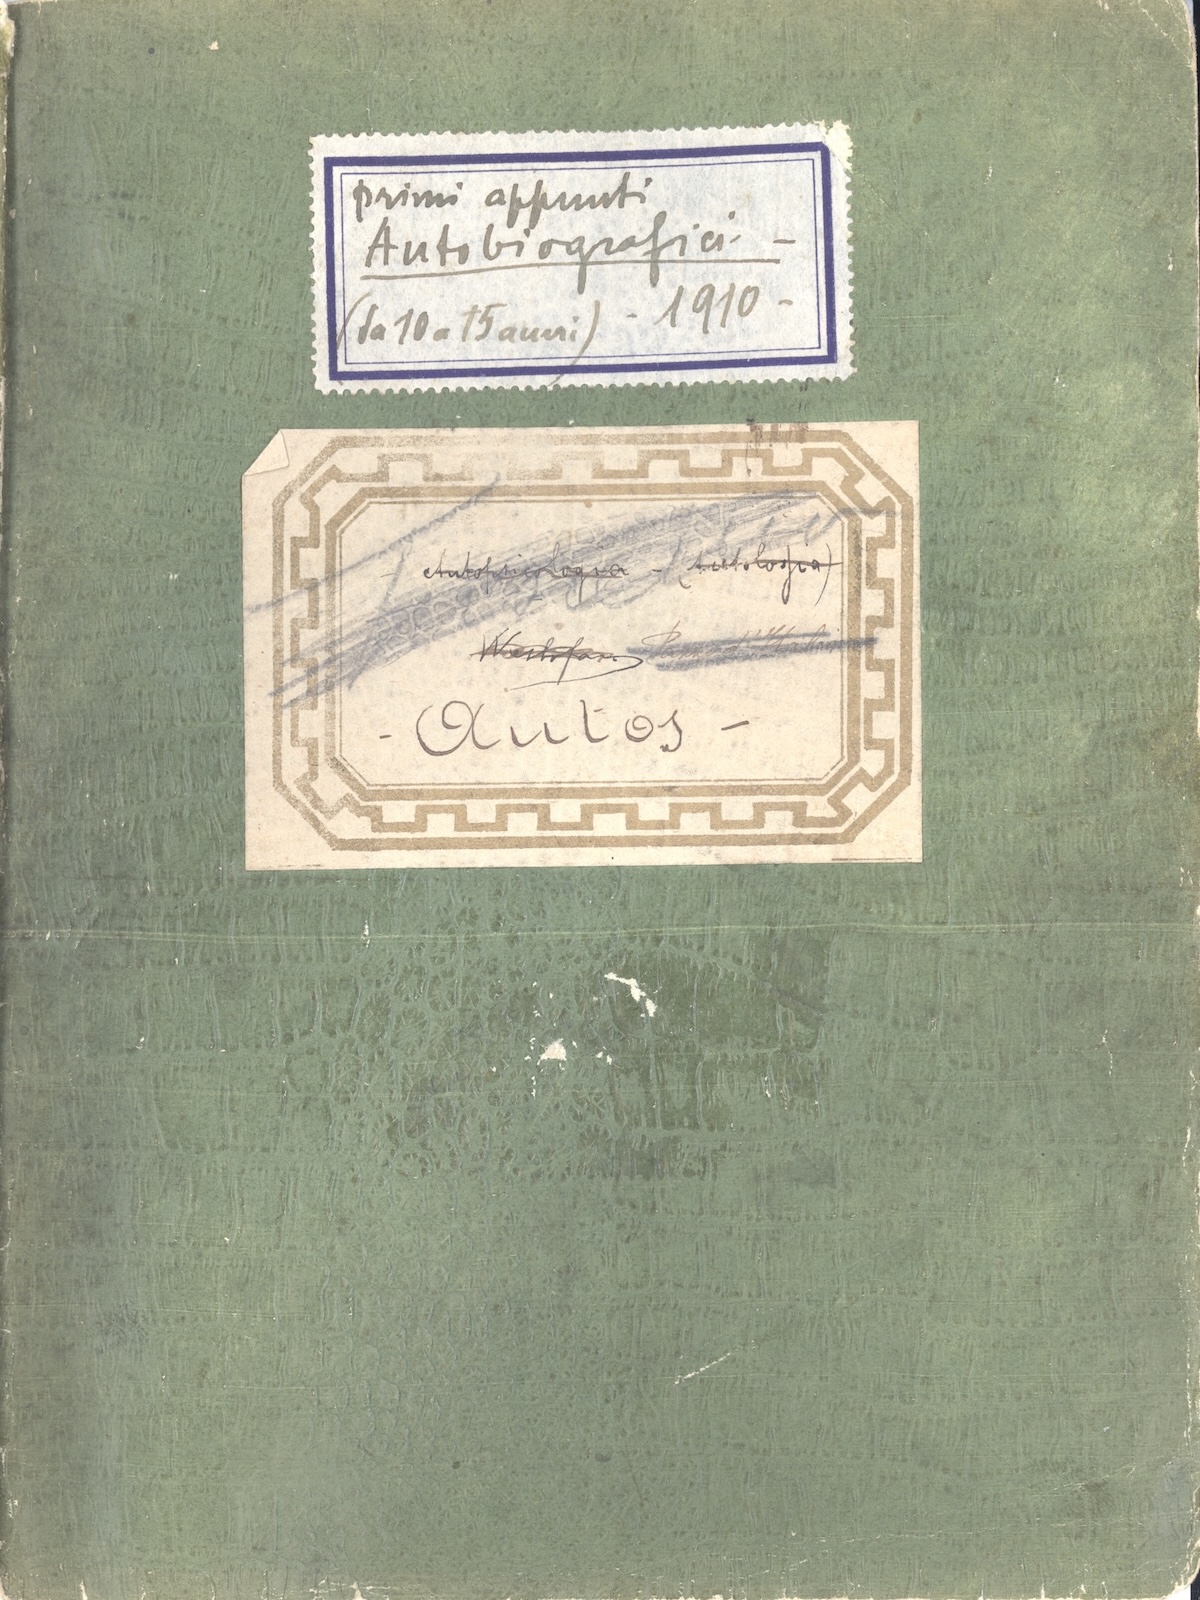 primi appunti
Autobiografici –
(da 10 a 15 anni) - 1910 -
- Autopsicologia - (Autologia)
- Autos -